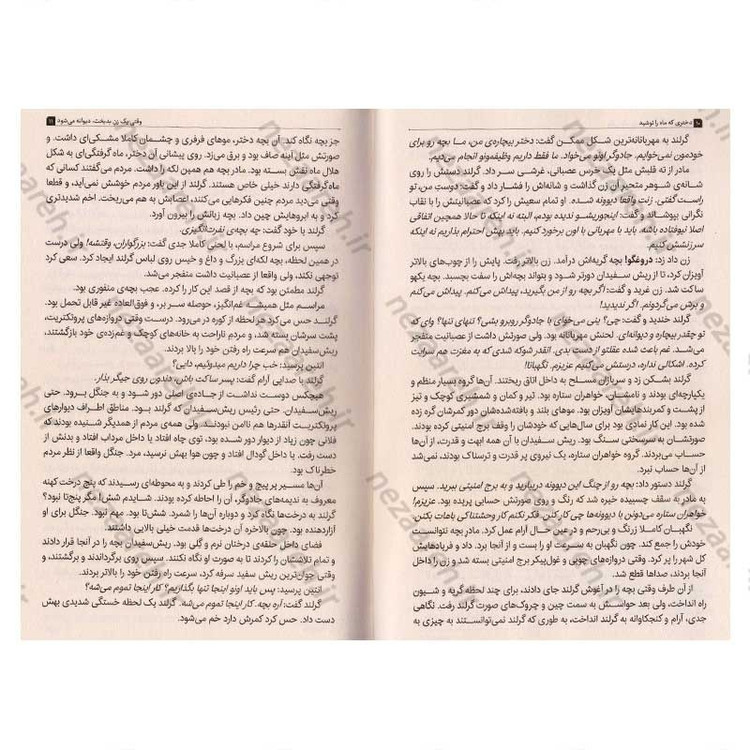 ۱۰ دختری که ماه را نوشید
گرلند به مهربانانه‌ترین شکل ممکن گفت: دختر بیچاره‌ی من، مـا بچه رو برای
خودمون نمی‌خوایم. جادوگر اونو می‌خواد. ما فقط داریم وظیفه‌مونو انجام می‌دیم.
مادر از ته قلبش مثل یک خرس عصبانی، غرشی سر داد. گرلند دستش را روی
شانه‌ی شوهر متحیر آن زن گذاشت و شانه‌اش را فشار داد و گفت: دوست من، تو
راست گفتی. زنت واقعا دیوونه شده. او تمام سعیش را کرد که عصبانیتش را با نقاب
نگرانی بپوشاند و گفت: اینجوریشو ندیده بودم، البته نه اینکه تا حالا همچین اتفاقی
اصلا نیوفتاده باشه. باید با مهربانی با اون برخورد کنیم. باید بهش احترام بذاریم نه اینکه
سرزنشش کنیم.
زن داد زد: دروغگو! بچه گریه‌اش درآمد. زن بالاتر رفت. پایش را از چوب‌های بالاتر
آویزان کرد، تا از ریش سفیدان دورتر شود و بتواند بچه‌اش را سفت بچسبد. بچه یکهو
ساکت شد. زن غرید و گفت: اگر بچه رو از من بگیرید، پیداش می‌کنم. پیداش می‌کنم
و برش می‌گردونم. اگر ندیدید!
گرلند خندید و گفت: چی؟ بنی می‌خوای با جادوگر روبرو بشی؟ تنهای تنها؟ وای که
تو چقدر بیچاره و دیوانه‌ای. لحنش مهربانانه بود. ولی صورتش داشت از عصبانیت منفجر
می‌شـد. غم باعث شده عقلتو از دست بدی. انقدر شوکه شدی که به مغزت هم سرایت
کرده. اشکالی نداره، درستش می‌کنیم عزیزم. نگهبانا!
گرلند بشکن زد و سربازان مسلح به داخل اتاق ریختند. آن‌ها گروه بسیار منظم و
یکپارچه‌ای بودند و نامشـان، خواهران ستاره بود. تیر و کمان و شمشیری کوچک و تیز
از پشت و کمربندهایشان آویزان بود. موهای بلند و بافته‌شده‌شان دور کمرشان گره زده
شده بود. این کار نمادی بود برای سال‌هایی که خودشان را وقف برج امنیتی کرده بودند.
صورتشان به سرسختی سنگ بود. ریش سفیدان با آن همه ابهت و قدرت، از آن‌ها
حساب می‌بردند. گروه خواهران ستاره، یک نیروی پر قدرت و ترسناک بودند، نمی‌شد
از آن‌ها حساب نبرد.
گرلند دستور داد: بچه رو از چنگ این دیوونه دربیارید و به برج امنیتی ببرید. سپس
به مادر به سقف چسبیده خیره شد که رنگ و روی صورتش حسابی پریده بود. عزیزم!
خواهران ستاره می‌دونن با دیوونه‌ها چی کار کنن. فکر نکنم کار وحشتناکی باهات بکنن.
نگهبان کاملـا زرنگ و بی‌رحم و در عین حال آرام عمل کرد. مادر بچه نتوانست
خودش را جمع کند. چون نگهبان به سرعت او را بست و از آنجا برد. داد و فریادهایش
کل شهر را پر کرد. وقتی دروازه‌های چوبی و غول‌پیکر برج امنیتی بسته شد و زن را داخل
آنجا بردند، صداها قطع شد.
از آن طرف وقتی بچه را در آغوش گرلند جای دادند، برای چند لحظه گریه و شـیون
راه انداخت، ولی بعد حواسش به سمت چین و چروک‌های صورت گرلند رفت. نگاهی
جدی، آرام و کنجکاوانه به گرلند انداخت، به طوری که گرلند نمی‌توانستند به چیزی به
وقتی یک زن بدبخت، دیوانه می‌شود ۱۱
جز بچه نگاه کند. آن بچه دختر، موهای فرفری و چشمان کاملا مشکی‌ای داشت. و
صورتش مثل آینه صاف بود و برق می‌زد. روی پیشانی آن دختر، ماه گرفتگی‌ای به شکل
هلال ماه نقش بسته بود. مادر بچه هم همین لکه را داشت. مردم می‌گفتند کسانی که
ماه‌گرفتگی دارند خیلی خاص هستند. گرلند از این باور مردم خوشش نمی‌آید، و قطعا
وقتی می‌دید مردم چنین فکرهایی می‌کنند، اعصابش به هم می‌ریخت. اخم شدیدتری
کرد و به ابروهایش چین داد. بچه زبانش را بیرون آورد.
گرلند با خود گفت: چه بچه‌ی نفرت‌انگیزی.
سپس برای شروع مراسم، با لحنی کاملا جدی گفت: بزرگواران، وقتشه! ولی درست
در همین لحظه، بچه لکه‌ای بزرگ و داغ و خیس روی لباس گرلند ایجاد کرد. سعی کرد
توجهی نکند، ولی واقعا از عصبانیت داشت منفجر می‌شد.
گرلند مطمئن بود که بچه از قصد این کار را کرده. عجب بچه‌ی منفوری بود.
مراسم مثل همیشه غم‌انگیز، حوصله سر بر، و فوق‌العاده غیر قابل تحمل بود.
گرلنـد حس می‌کرد هر لحظه از کوره در می‌رود. درست وقتی دروازه‌های پروتکتریت،
پشت سرشان بسته شد، و مردم ناراحت به خانه‌های کوچک و غم‌زده‌ی خود بازگشتند،
ریش‌سفیدان هم سرعت راه رفتن خود را بالا بردند.
انتین پرسید: خب چرا داریم میدوئیم، دایی؟
گرلند با صدایی آرام گفت: پسر ساکت باش. دندون روی جیگر بذار.
هیچکس دوست نداشت از جاده‌ی اصلی دور شود و به جنگل برود. حتی
ریش‌سفیدان. حتی رئیس ریش‌سفیدان که گرلند بود. مناطق اطراف دیوارهای
پروتکتوریت آنقدرها هم ناامن نبودنـد. ولی همه‌ی مردم از همدیگر شنیده بودند که
فلانی چون زیاد از دیوار دور شده بود، توی چاه افتاد یا داخل مرداب افتاد و بدنش از
دست رفت. یا داخل گودال افتاد و چون هوا بهش نرسید، مرد. جنگل واقعا از نظر مردم
خطرناک بود.
آن‌ها مسـیر پر پیچ و خم را طی کردند و به محوطه‌ای رسیدند که پنج درخت کهنه
معروف به ندیمه‌های جادوگر، آن را احاطه کرده بودند. شایدم شش! مگر پنج‌تا نبود؟
گرلند به درخت‌ها نگاه کرد و دوباره آن‌ها را شمرد. شش‌تا بود. مهم نبود. جنگل برای او
آزاردهنده بود. چون بالاخره آن درخت‌ها قدمت خیلی بالایی داشتند.
فضای داخل حلقه‌ی درختان نرم و گلی بود. ریش‌سفیدان بچه را در آنجا قرار دادند
و تمام تلاششان را کردند تا به صورت او نگاه نکنند. سپس روی برگرداندند و برگشتند، و
وقتی جوان‌ترین ریش سفید سرفه کرد، سرعت راه رفتن خود را بالاتر بردند.
انتین پرسید: پس باید اونو اینجا تنها بگذاریم؟ کار اینجا تموم می‌شه؟
گرلند گفت: آره بچه. کار اینجا تموم می‌شه. گرلند یک لحظه خستگی شدیدی بهش
دست داد. حس کرد کمرش دارد خم می‌شود.